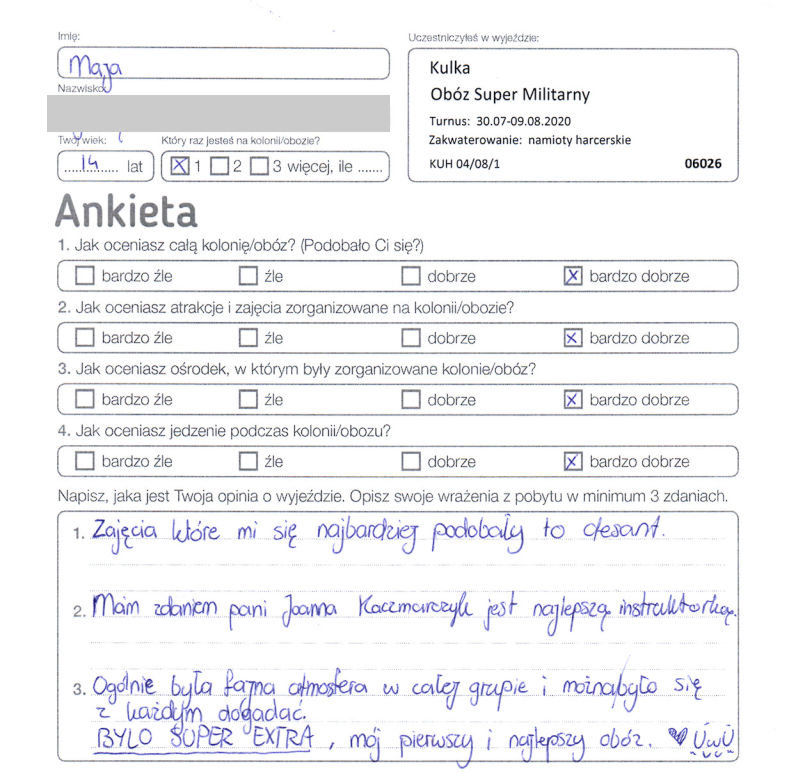 Imię:
Uczestniczyłeś w wyjeździe:
Maja
Kulka
Obóz Super Militarny
Nazwisko
Turnus: 30.07-09.08.2020
Twój wiek:
Który raz jesteś na kolonii/obozie?
Zakwaterowanie: namioty harcerskie
.....14...... lat
X 1 2 3 więcej, ile .......
KUH 04/08/1 06026
Ankieta
1. Jak oceniasz całą kolonię/obóz? (Podobało Ci się?)
bardzo źle źle dobrze X bardzo dobrze
2. Jak oceniasz atrakcje i zajęcia zorganizowane na kolonii/obozie?
bardzo źle źle dobrze X bardzo dobrze
3. Jak oceniasz ośrodek, w którym były zorganizowane kolonie/obóz?
bardzo źle źle dobrze X bardzo dobrze
4. Jak oceniasz jedzenie podczas kolonii/obozu?
bardzo źle źle dobrze X bardzo dobrze
Napisz, jaka jest Twoja opinia o wyjeździe. Opisz swoje wrażenia z pobytu w minimum 3 zdaniach.
1. Zajęcia które mi się najbardziej podobały to desant.
2. Moim zdaniem pani Joanna Kaczmarczyk jest najlepszą instruktorką.
3. Ogólnie była fajna atmosfera w całej grupie i można było się
z każdym dogadać.
BYLO SUPER EXTRA, mój pierwszy i najlepszy obóz. ♥ UwU